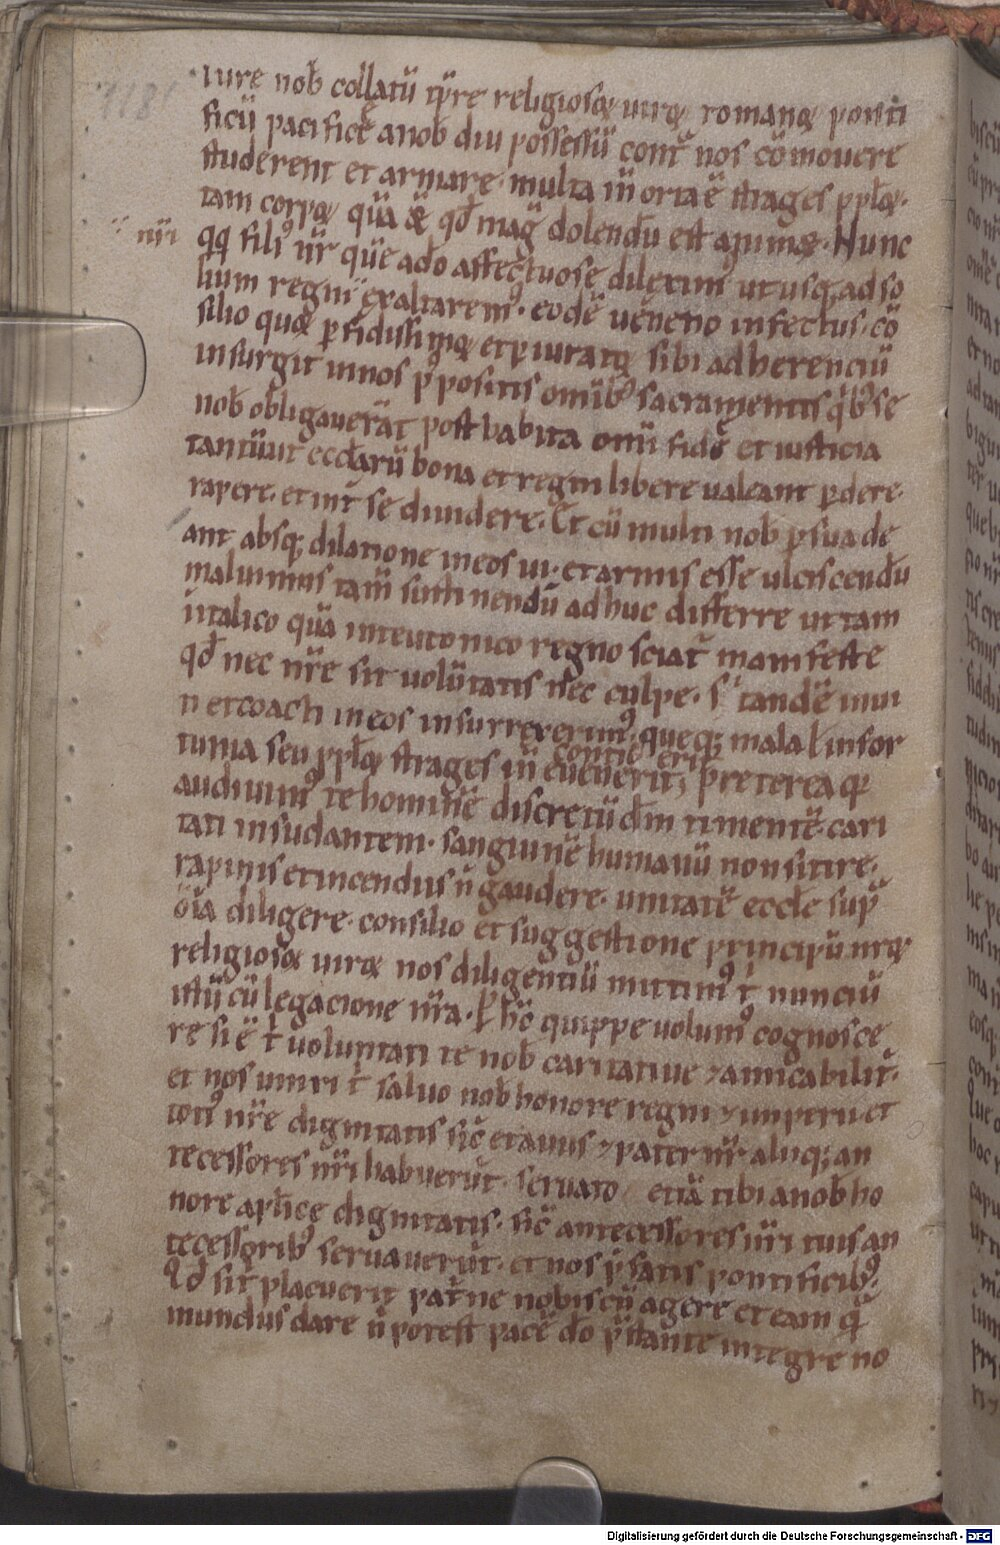 iure nob̄ collatū tp̄re religiosoꝝ uiroꝝ romanoꝝ ponti
ficū pacifice anob̄ diu possessū cont̄ nos cōmouere
studerent et armare. multa iñ orta ē strages pp̄loꝝ.
tam corpoꝝ quā & qđ mag̃ dolendū est animaꝝ. Nunc
qq fili᷒ nr̄ quē ado affectuose dilexim᷒ ut usq; ad so
nr̄i
lium regni exaltarem᷒. eodē ueneno infectus. cō
silio quoꝝ ꝑfidissimoꝝ et ꝑiuratoꝝ sibi adherenciū
insurgit in nos p̄positis omīb᷒ sacramentis q̄b᷒ se
nob̄ obligauerāt posthabita omī fide et iusticia
tantū ut eccl̄arū bona et regni libere ualeant ꝑdere.
rapere. et int̄ se diuidere. Et cū multi nob̄ ꝑsuade
ant absq; dilatione in eos ui. et armis esse ulciscendū
maluimus tam̄ sustinendū adhuc differre ut tam
initalico quā inteutonico regno sciat̄ manifeste
qđ nec nr̄e sit uolūtatis nec culpe. sⁱ tandē inui
ti et coacti in eos insurrexerim᷒. queq; mala ł infor
contiḡerīt
tunia seu pp̄loꝝ strages iñ euenerīt; Preterea qꝛ
audiuim᷒ te hominē discretū dm̄ timentē. cari
tati insudantem. sanguinē humanū non sitire.
rapinis et incendiis ñ gaudere. unitatē eccl̄e sup̄
om̄ia diligere. consilio et suggestione principū nr̄oꝝ
religiosoꝝ uiroꝝ nos diligentiū mittim᷒ t̄ nunciū
istū cū legacione nr̄a. P̱ hc̄ quippe uolum᷒ cognosce
re si ē t̄ uoluntati te nob̄ caritatiue ⁊ amicabilit̄.
et nos uniri t̄ saluo nob̄ honore regni ⁊ imperii et
toti᷒ nr̄e dignitatis sic̄ et auus ⁊ pater nr̄ aliiq; an
tecessores nr̄i habuerūt. seruato etiā tibi anob̄ ho
nore apl̄ice dignitatis. sic̄ antecessores nr̄i tuis an
tecessorib᷒ seruauerūt. et nos p̄satis pontificib᷒.
Qđ si t̄ placuerit pat̄ne nobiscū agere et eam q̄
mundus dare ñ potest pacē do p̄stante integre no
Digitalisierung gefördert durch die Deutsche Forschungsgemeinschaft - DFG